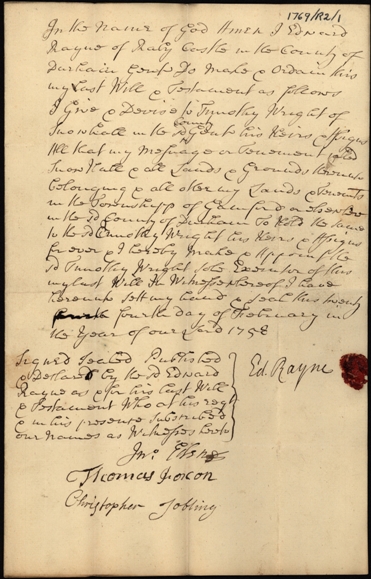 1769/R2/1
In the Name of God Amen I Edward
Rayne of Raby Castle in the County of
Durham Gent Do Make & Ordain this
my Last Will & Testament as follows
I Give & Devise to Timothy Wright of
Snowhall in the sd County Gent his Heirs & Assigns
All that my Messuage or Tenement called
Snow Hall & all Lands & Grounds thereunto
belonging & all other my Lands & Tenemts
in the Township of Gainford or elsewhere
in the sd County of Durham To Hold the same
to the sd Timothy Wright his Heirs & Assigns
for ever & I hereby Make & Appoint the
sd Timothy Wright sole Executor of this
my Last Will In Witness whereof I have
hereunto sett my hand & Seal this twenty
fourth day of February in
the Year of our Lord 1758
Signed Sealed Published
& Declared by the sd Edward
Rayne as & for his last Will
& Testament Who at his reqt
& in his presence Subscribed
our Names as Witnesses hereto
Ed. Rayne
Jno.
Thomas
Christopher Jobling